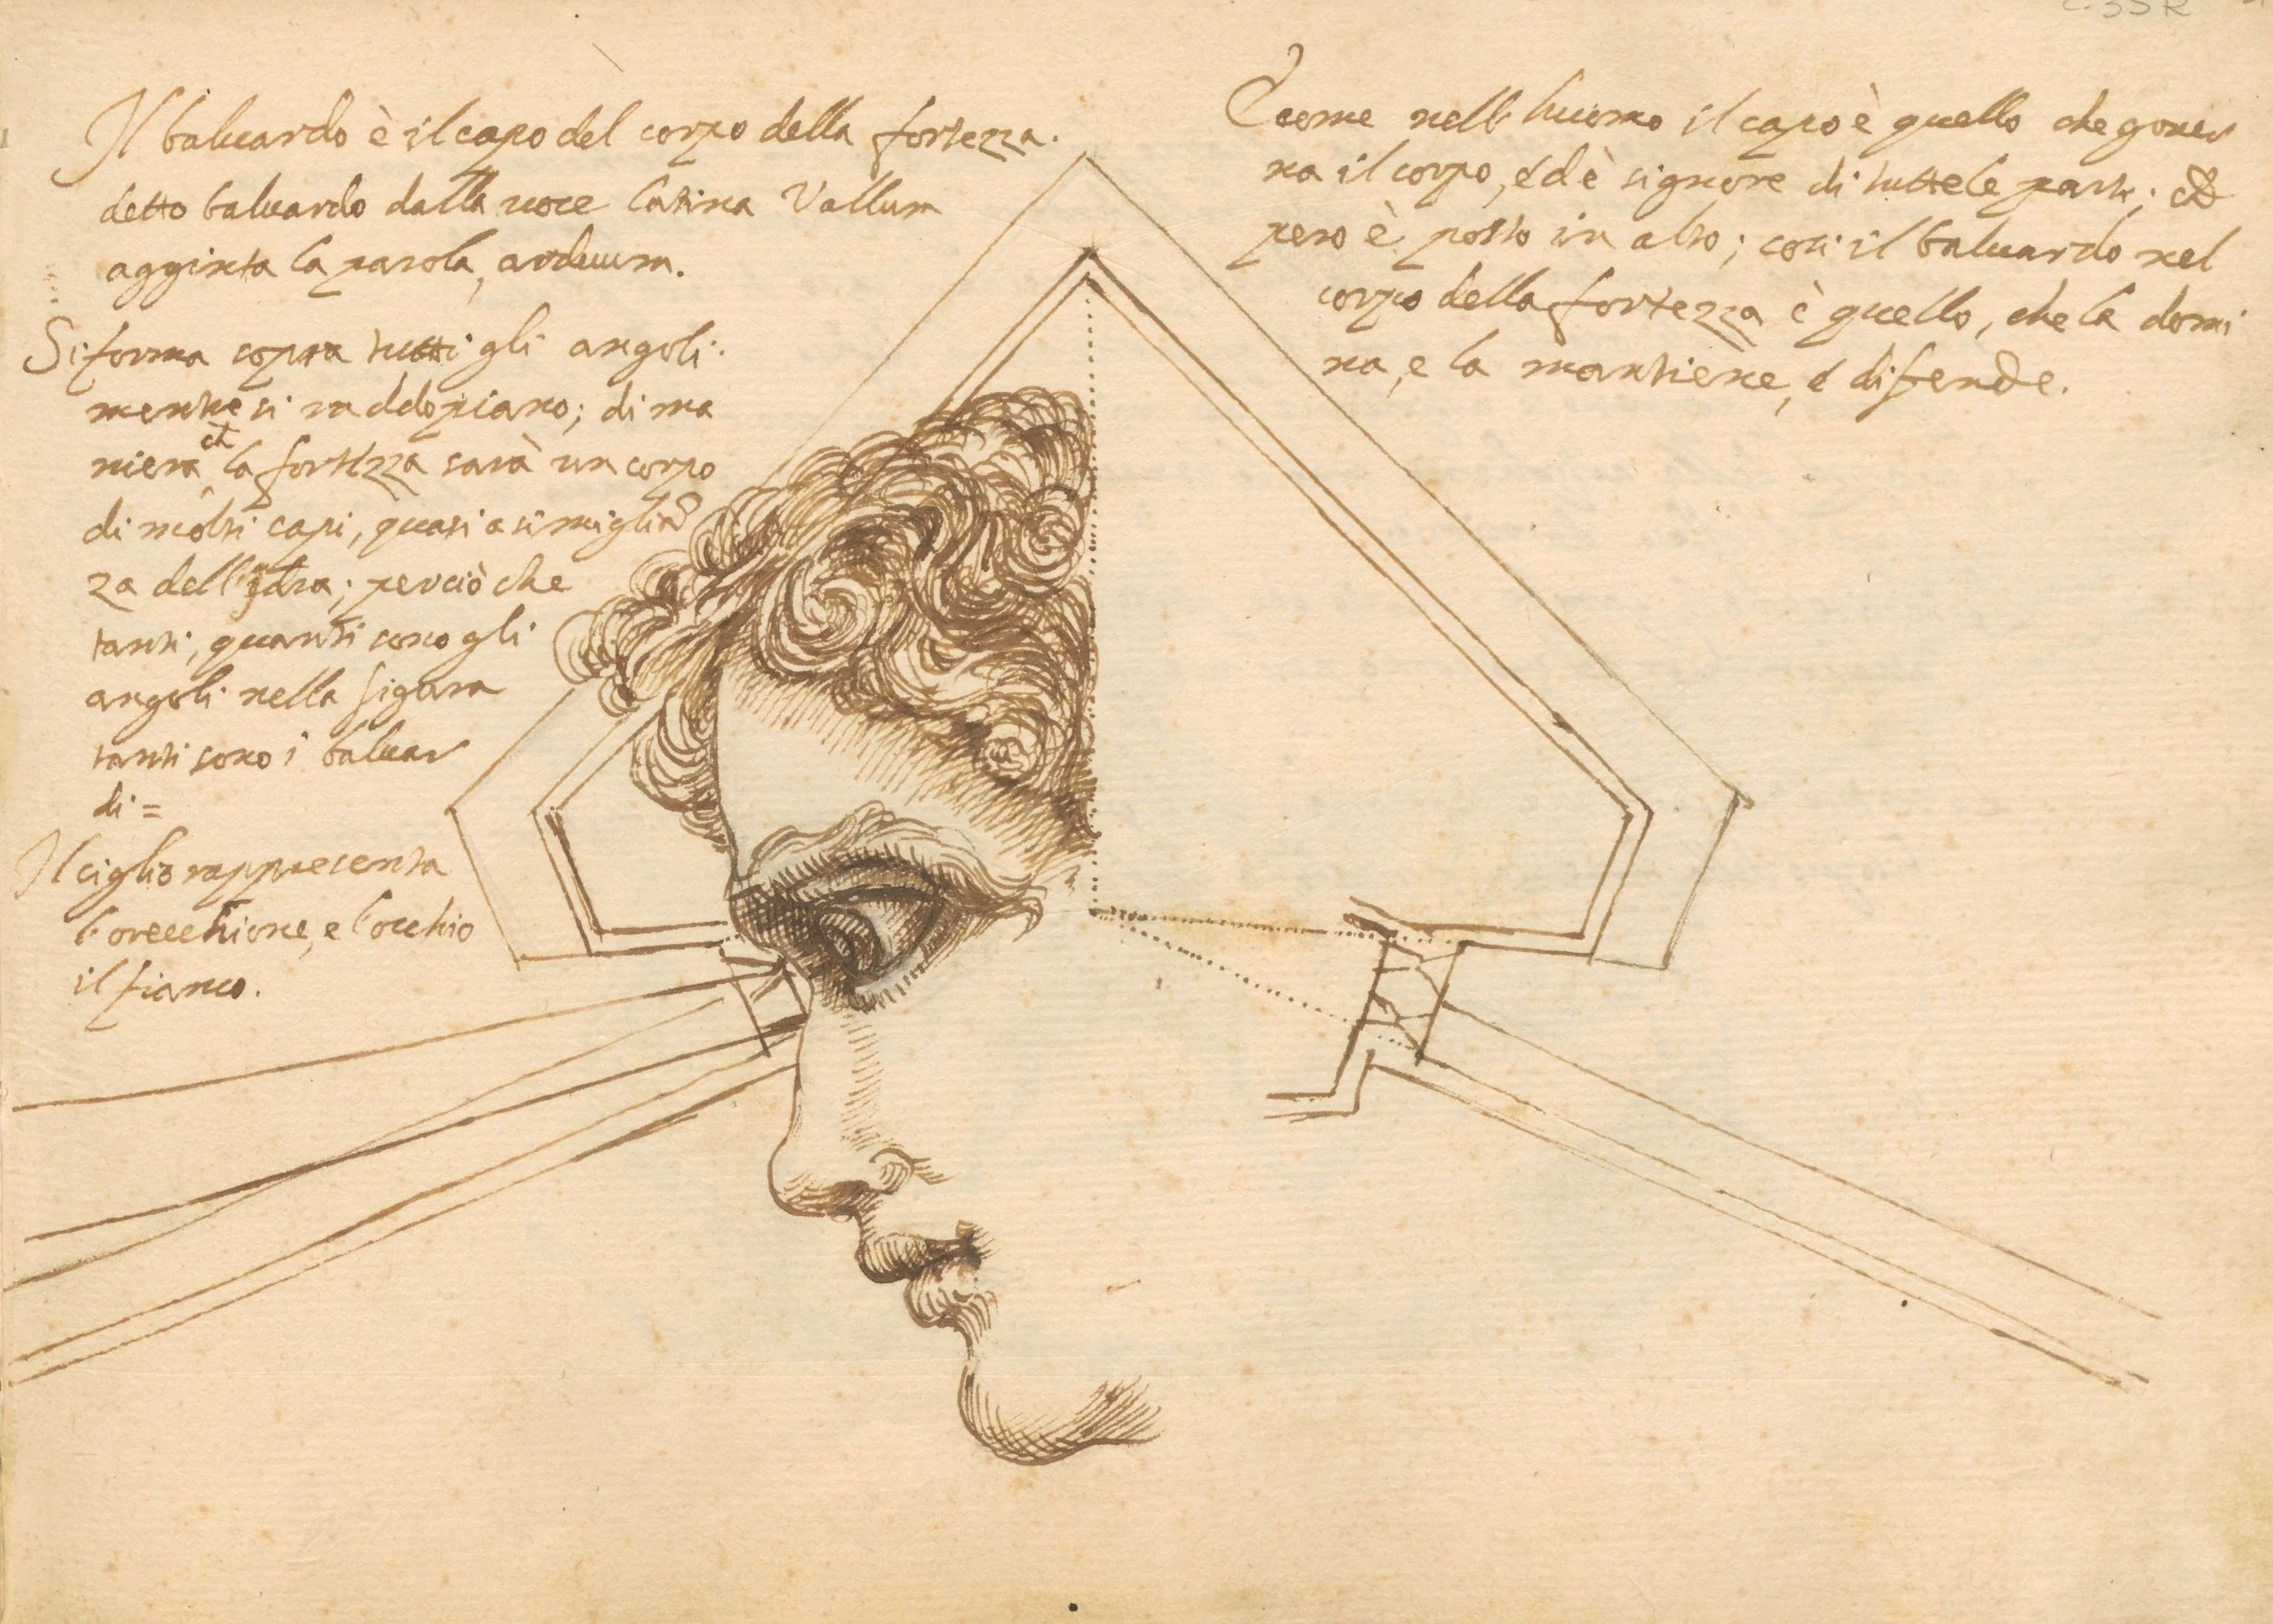 Il baluardo è il capo del corpo della fortezza.
detto baluardo dalla uoce latina Vallum
aggiñta la parola, arduum.
Si forma sopra tutti gli angoli.
mentre si ua del piano; di ma
niera ch la fortezza sarà un corpo
di molti capi, quasi a simiglian
za dell'Idra; perciò che
tanti, quanti sono gli
angoli nella figura
tanti sono i baluar
di =
Il ciglio rappresenta
l'orecchione, e l'occhio
il fianco.
E come nell' huomo il capo è quello che gouer
na il corpo, ed è signore di tutte le parti; et
pero è posto in alto; cosi il baluardo nel
corpo della fortezza è quello, che la domi
na, e la mantiene, e difende.